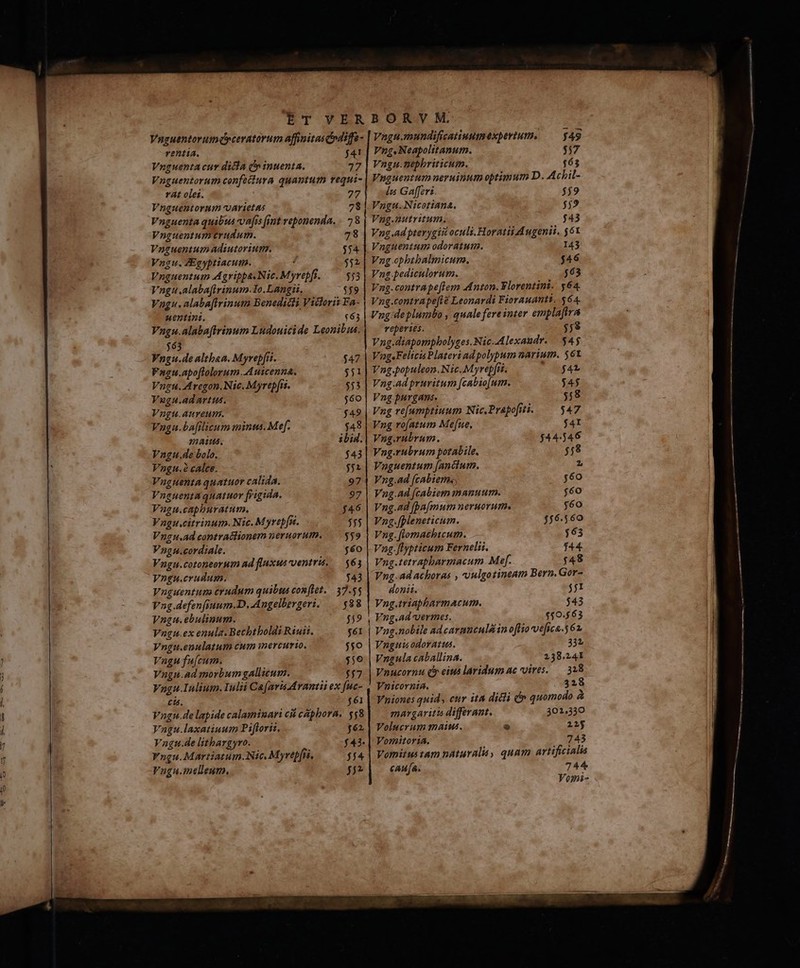 ET VERBORVM.
Vnguentorum & ceratorum affinitas & diffe-
rentia. 541
Vnguenta cur dicta & inuenta. 77
Vnguentorum confectura quantum requi-
rat olei. 77
Vnguentorum varietas 78
Vnguenta quibus vasis sint reponenda. 78
Vnguentum crudum. 78
Vnguentum adiutorium. 554
Vngu. Ægyptiacum. 552
Vnguentum Agrippa. Nic. Myrepsi. 553
Vngu.alabastrinum. Io. Langii. 559
Vngu. alabastrinum Benedicti Victoris Fa-
uentini. 563
Vngu.alabastrinum Ludouici de Leonibus.
563
Vngu.de althæa. Myrepsii. 547
Vngu.apostolorum. Auicenna. 551
Vngu. Aregon. Nic. Myrepsis. 553
Vngu.ad artus. 560
Vngu. aureum. 549
Vngu.basilicum minus. Mes. 548
maius. ibid.
Vngu.de bolo. 543
Vngu.è calce. 552
Vnguenta quatuor calida. 97
Vnguenta quatuor frigida. 97
Vngu.caphuratum. 546
Vngu.citrinum. Nic. Myrepsii. 555
Vngu.ad contractionem neruorum. 559
Vngu.cordiale. 560
Vngu.cotoneorum ad fluxus ventris. 563
Vngu.crudum. 543
Vnguentum crudum quibus constet. 37.55
Vng.defensiuum. D. Angelbergeri. 588
Vngu.ebulinum. 559
Vngu.ex enula. Bechtholdi Riuii. 561
Vngu.enulatum cum mercurio. 550
Vngu fuscum. 550
Vngu.ad morbum gallicum. 557
Vngu.Iulium. Iulii Cæsaris Arantii ex suc-
cis. 561
Vngu.de lapide calaminari cũ cāphora. 558
Vngu.laxatiuum Pistoris. 562
Vngu.de lithargyro. 543.
Vngu. Martiatum. Nic. Myrepsii. 554
Vngu.melleum. 552
Vngu.mundificatiuum expertum. 549
Vng. Neapolitanum. 557
Vngu.nephriticum. 563
Vnguentum neruinum optimum D. Achil-
lis Gasseri. 559
Vngu. Nicotiana. 552
Vng.nutritum. 543
Vng.ad pterygiũ oculi. Horatii Augenii. 561
Vnguentum odoratum. 143
Vng.ophthalmicum. 546
Vng.pediculorum. 563
Vng.contra pestem Anton. Florentini. 564
Vng.contra pestẽ Leonardi Fiorauanti. 564.
Vng de plumbo, quale fere inter emplastra
reperies. 558
Vng.diapompholyges. Nic. Alexandr. 545
Vng.Felicis Plateri ad polypum narium. 561
Vng.populeon. Nic. Myrepsii. 542
Vng.ad pruritum scabiosum. 545
Vng purgans. 558
Vng resumptiuum Nic. Præpositi. 547
Vng rosatum Mesue. 541
Vng.rubrum. 544.546
Vng.rubrum potabile. 558
Vnguentum sanctum. 2
Vng.ad scabiem. 560
Vng.ad scabiem manuum. 560
Vng.ad spasmum neruorum. 560
Vng.spleneticum. 556.560
Vng.stomachicum. 563
Vng.stypticum Fernelii. 544
Vng.tetrapharmacum Mes. 548
Vng.ad achoras, vulgo tineam Bern. Gor-
donii. 551
Vng.triapharmacum. 543
Vng.ad vermes. 550.563
Vng.nobile ad carunculã in ostio vesicæ. 562
Vnguis odoratus. 332
Vngula caballina. 238.241
Vnucornu & eius laridum ac vires. 328
Vnicornia. 328
Vniones quid, cur ita dicti & quomodo à
margaritis differant. 301.330
Volucrum maius. 225
Vomitoria. 743
Vomitus tam naturalis, quam artificialis
causæ. 744
Vomi-